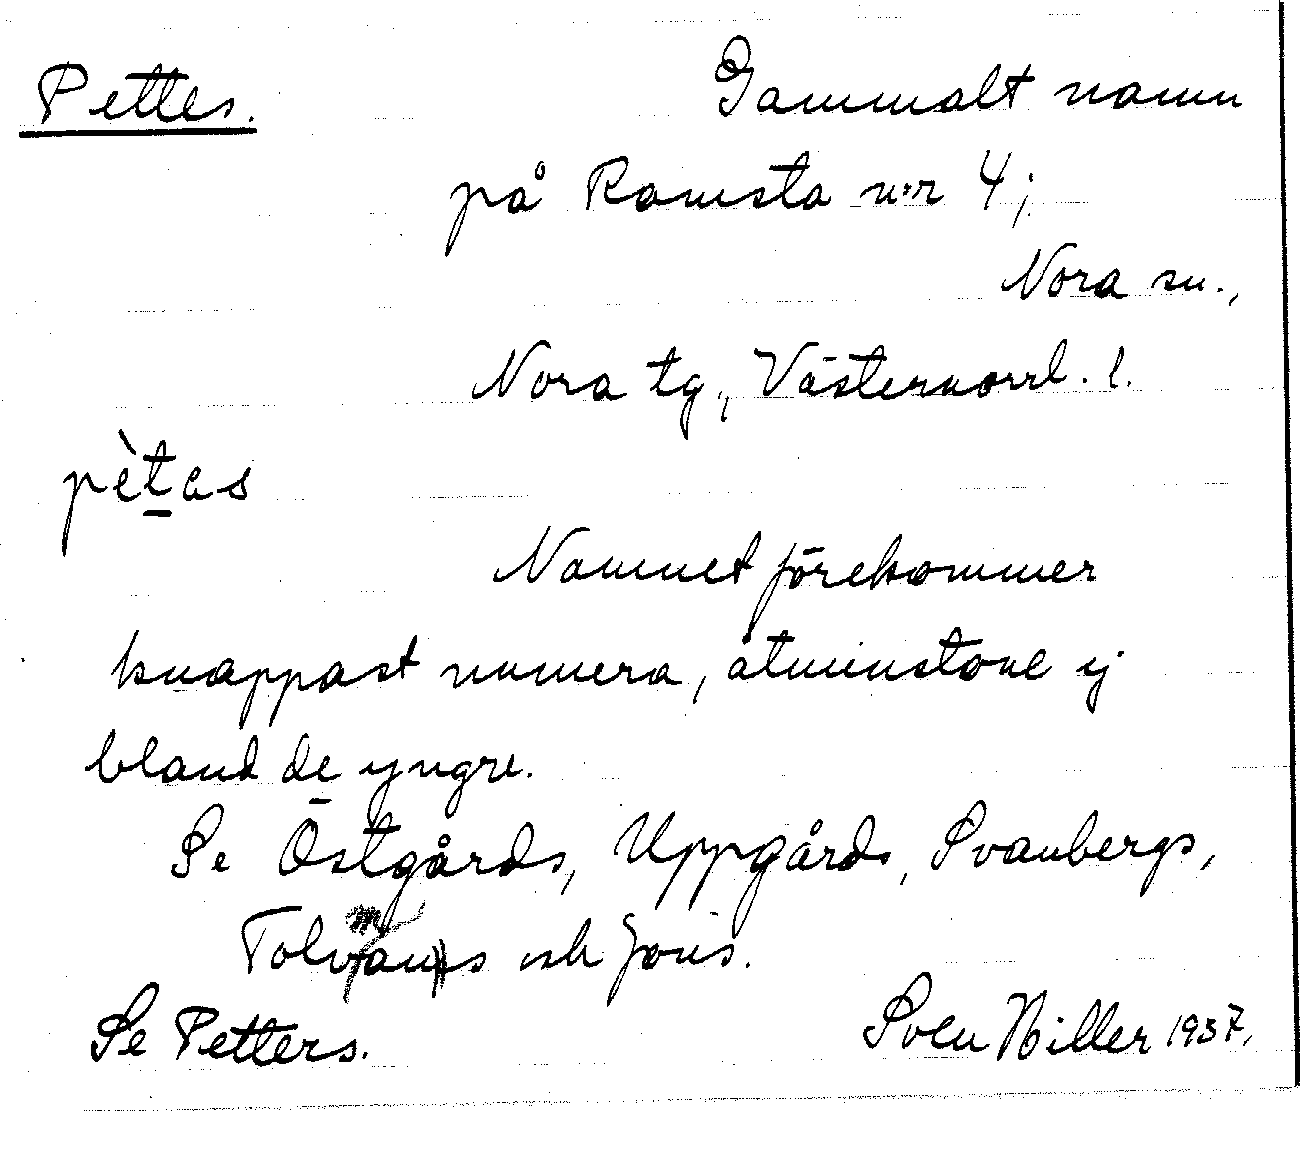 Pettes. Gammalt namn
på Ramsta n:r 4;
Nora sn.,
Nora tg., Västernorrl. l.
pètas
Namnet förekommer
knappast numera, åtminstone ej
bland de yngre.
Se Östgårds, Uppgårds, Svanbergs,
och Jonis.
Se Petters. Sven Hiller 1937.